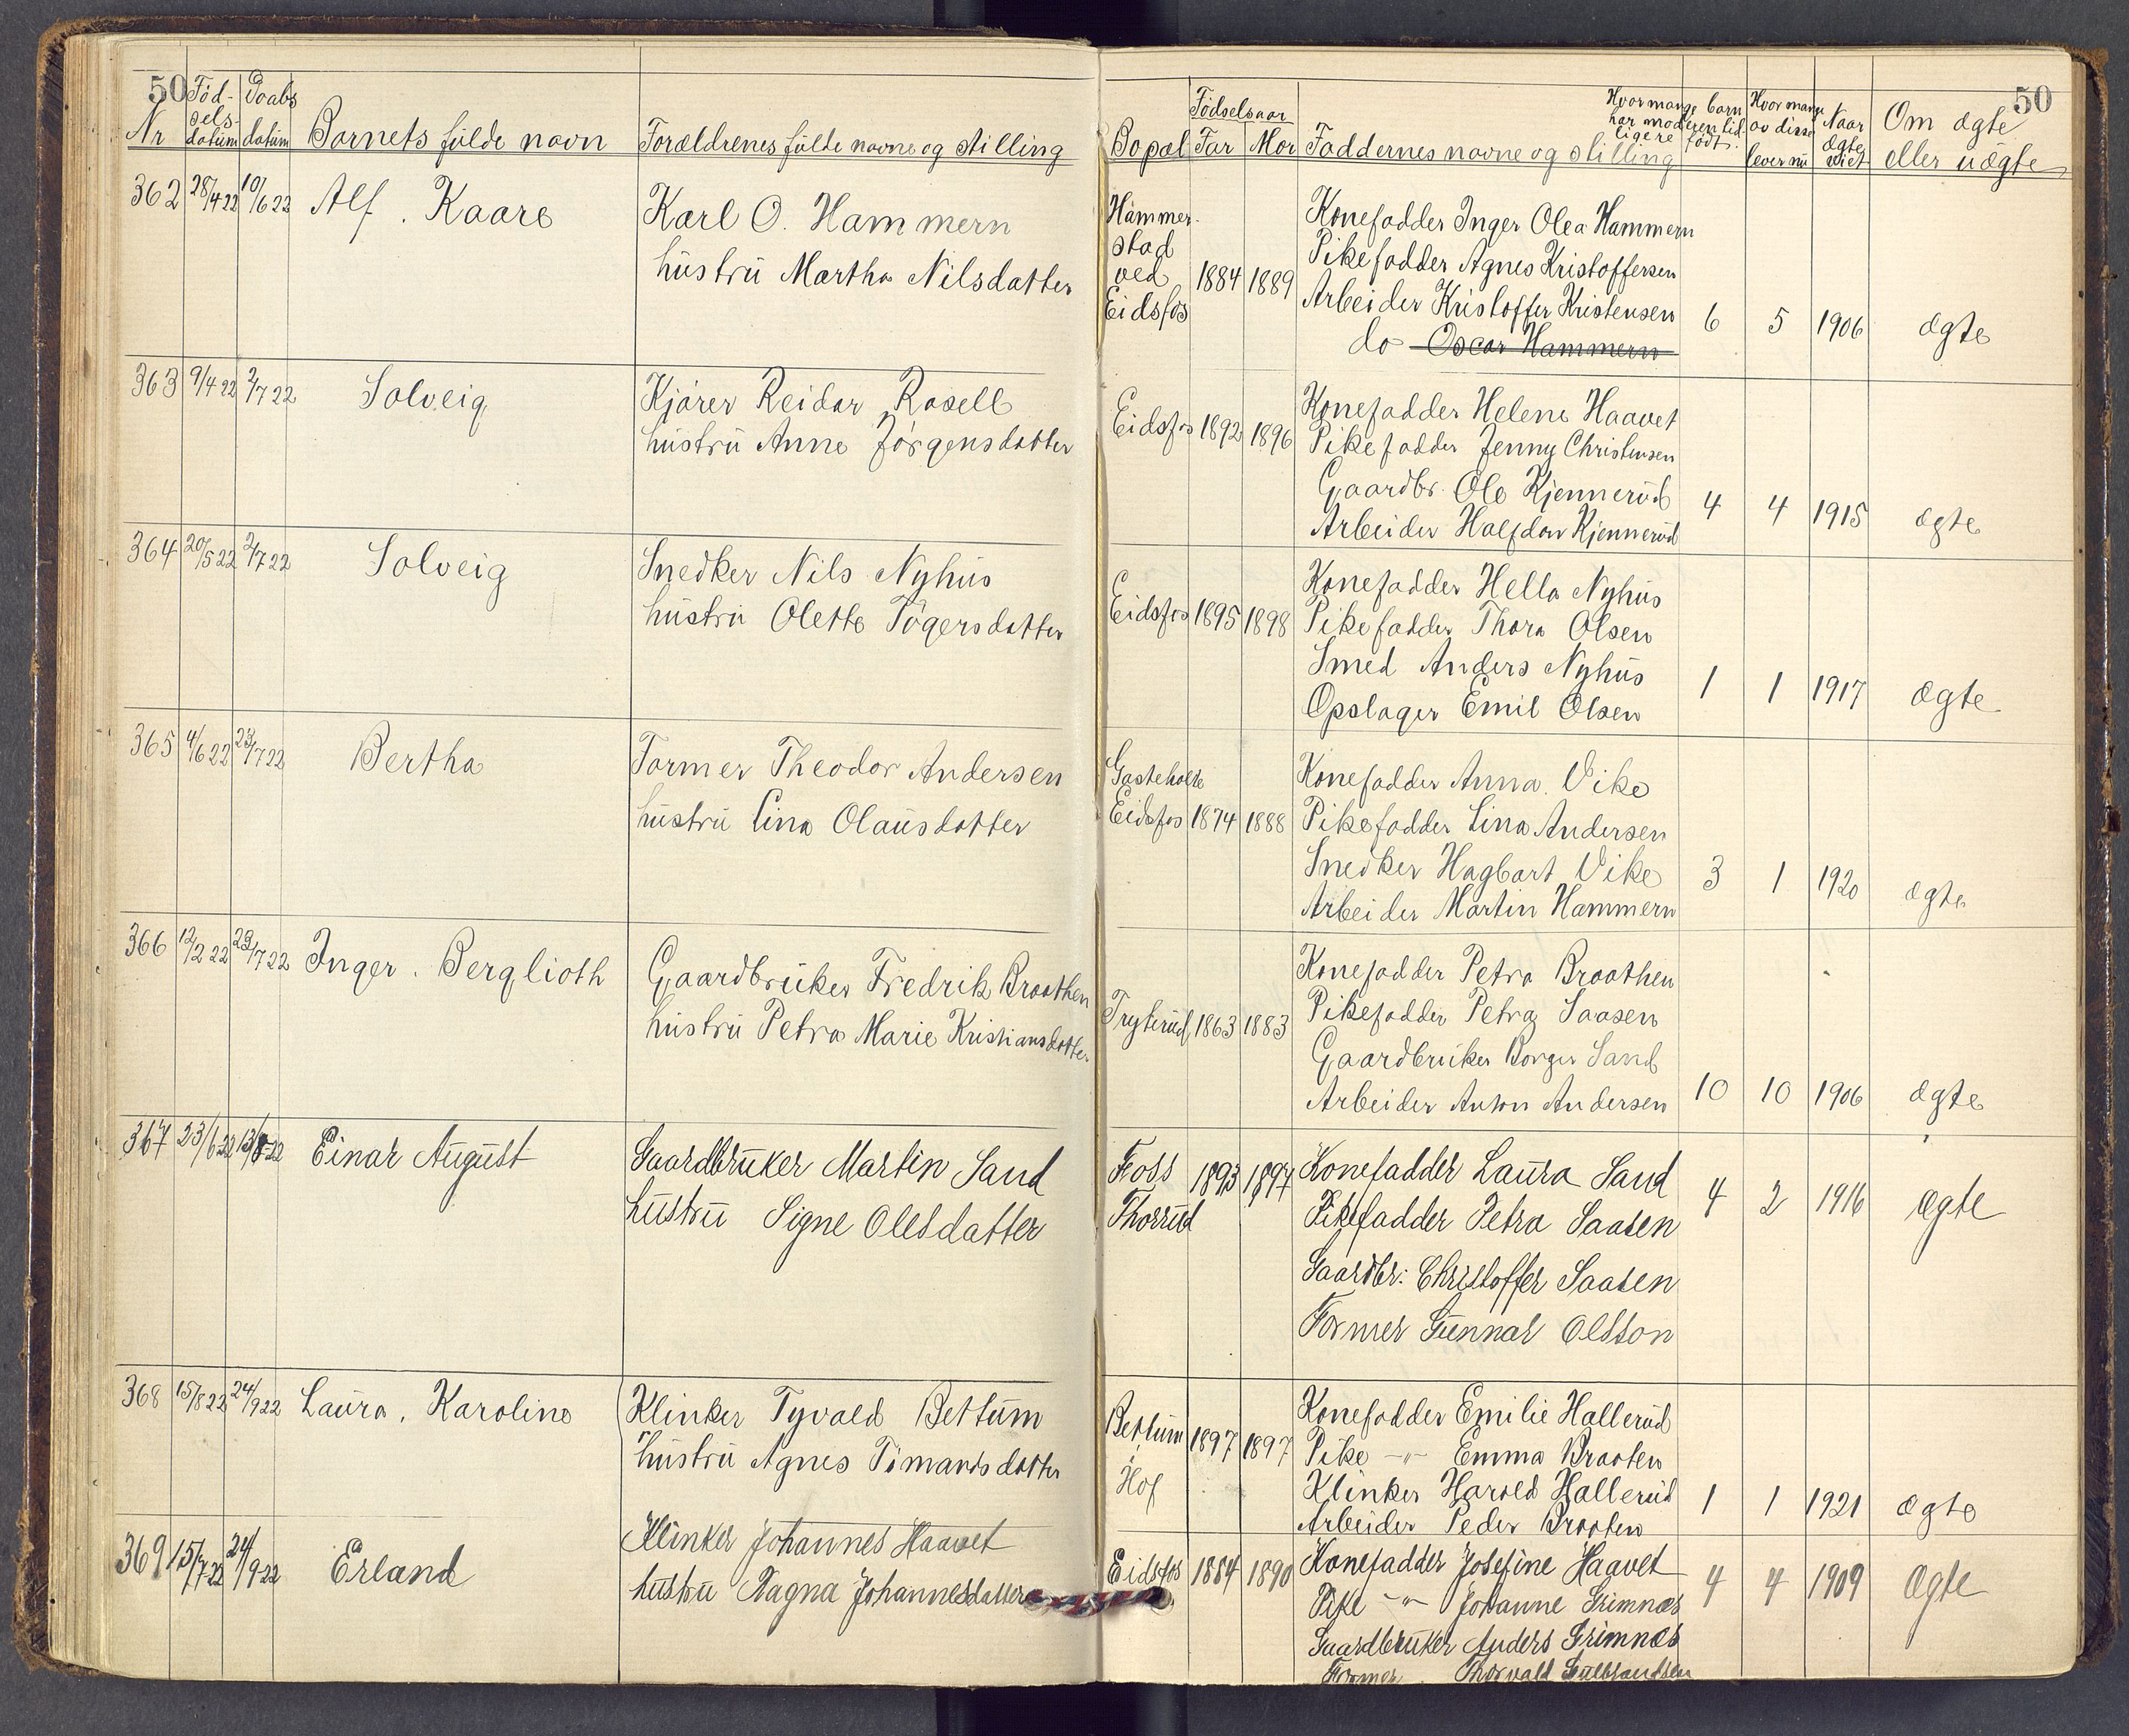 50
50
Nr
Föd-
sels-
datum
Daabs
datum
Barnets fulde navn
Forældrenes fulde navne og stilling
Bopæl
Födselsaar
Far
Mor
Faddernes navne og stilling
Hvormange barn
har moderen tid-
ligere födt.
Hvor mange
av disse
lever nu
Naar
ægte
viet
Om ægte
eller uægte
362 28/4 22 10/6 22 Alf. Kaare
Karl O. Hammern
hustru Martha Nilsdatter
Hammer-
stad
ved
Eidsfos
1884 1889
Konefadder Inger Olea Hammern
Pikefadder Agnes Kristoffersen
Arbeider Kristoffer Kristensen
do Oscar Hammern
6 5 1906 ægte
363 9/4 22 2/7 22 Solveig
Kjörer Reidar Rosell
hustru Anne Jörgensdatter
Eidsfos 1892 1896
Konefadder Helene Haavet
Pikefadder Jenny Christensen
Gaardbr. Ole Kjennerud
Arbeider Halfdan Kjennerud
4 4 1915 ægte
364 20/5 22 2/7 22 Solveig
Snedker Nils Nyhus
hustru Olette Tögersdatter
Eidsfos 1895 1898
Konefadder Hella Nyhus
Pikefadder Thora Olsen
Smed Anders Nyhus
Opslager Emil Olsen
1 1 1917 ægte
365 4/6 22 23/7 22 Bertha
Former Theodor Andersen
hustru Lina Olausdatter
Gasteholte
Eidsfos 1874 1888
Konefadder Anna Vike
Pikefadder Lina Andersen
Snedker Hagbart Vike
Arbeider Martin Hammern
3 1 1920 ægte
366 12/2 22 23/7 22 Inger. Berglioth
Gaardbruker Fredrik Braathen
hustru Petra Marie Kristiansdatter
Tryterud 1863 1883
Konefadder Petra Braathen
Pikefadder Petra Saasen
Gaardbruker Borger Sand
Arbeider Anton Andersen
10 10 1906 ægte
367 23/6 22 13/8 22 Einar August
Gaardbruker Martin Sand
hustru Signe Olesdatter
Foss
Thorrud
1893 1897
Konefadder Laura Sand
Pikefadder Petra Saasen
Gaardbr: Christoffer Saasen
Former Gunnar Olsson
4 2 1916 ægte
368 15/8 22 24/9 22 Laura. Karoline
Klinker Tyvald Bettum
hustru Agnes Timandsdatter
Bettum
Hof
1897 1897
Konefadder Emilie Hallerud
Pike -"- Emma Braaten
Klinker Harold Hallerud
Arbeider Peder Braaten
1 1 1921 ægte
369 15/7 22 24/9 22 Erland
Klinker Johannes Haavet
hustru Ragna Johannesdatter
Eidsfos 1884 1890
Konefadder Josefine Haavet
Pike -"- Johanne Grimnæs
Gaardbruker Anders Grimnæs
Former Thorvald Gulbrandsen
4 4 1909 ægte